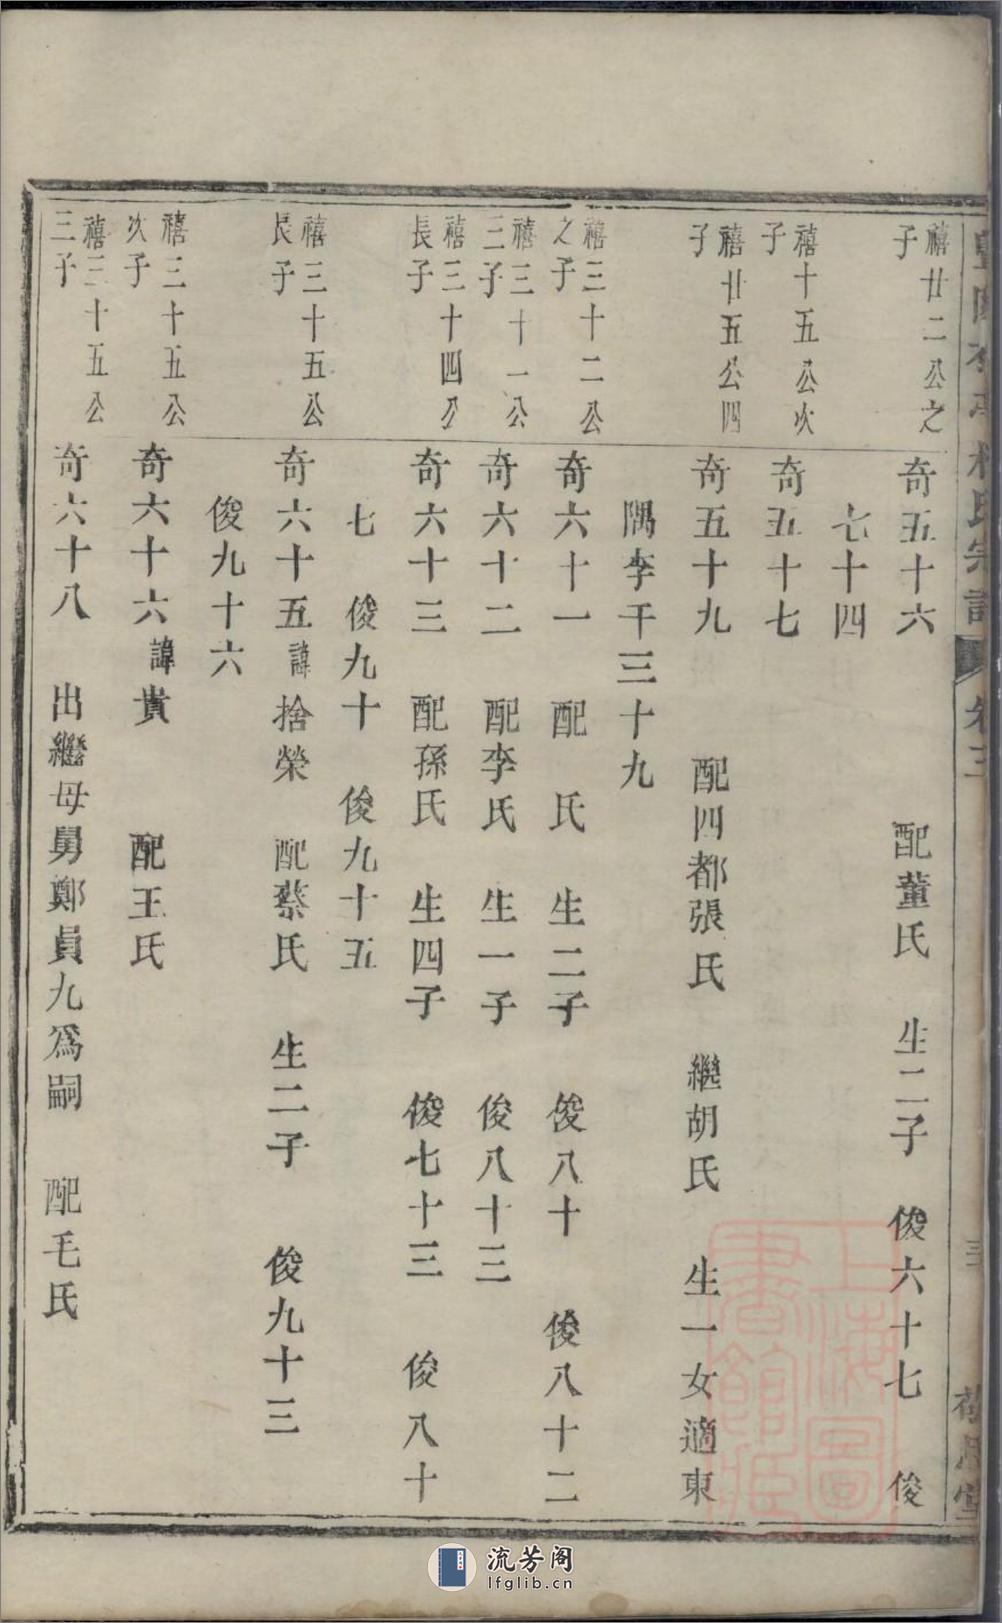 氏宗譜 卷三
禧廿二公之子
奇五十六 配董氏 生二子 俊六十七 俊
七十四
禧十五公次子
奇五十七
禧廿五公四子
奇五十九 配四都張氏 繼胡氏 生一女適東
隅李千三十九
禧三十二公之子
奇六十一 配 氏 生二子 俊八十 俊八十二
禧三十一公三子
奇六十二 配李氏 生一子 俊八十三
禧三十四公長子
奇六十三 配孫氏 生四子 俊七十三 俊八十
七 俊九十 俊九十五
禧三十五公長子
奇六十五諱捨榮 配蔡氏 生二子 俊九十三
俊九十六
禧三十五公次子
奇六十六諱貴 配王氏
禧三十五公三子
奇六十八 出繼母舅鄭員九爲嗣 配毛氏
上海圖書館藏
流芳阁
lfglib.cn